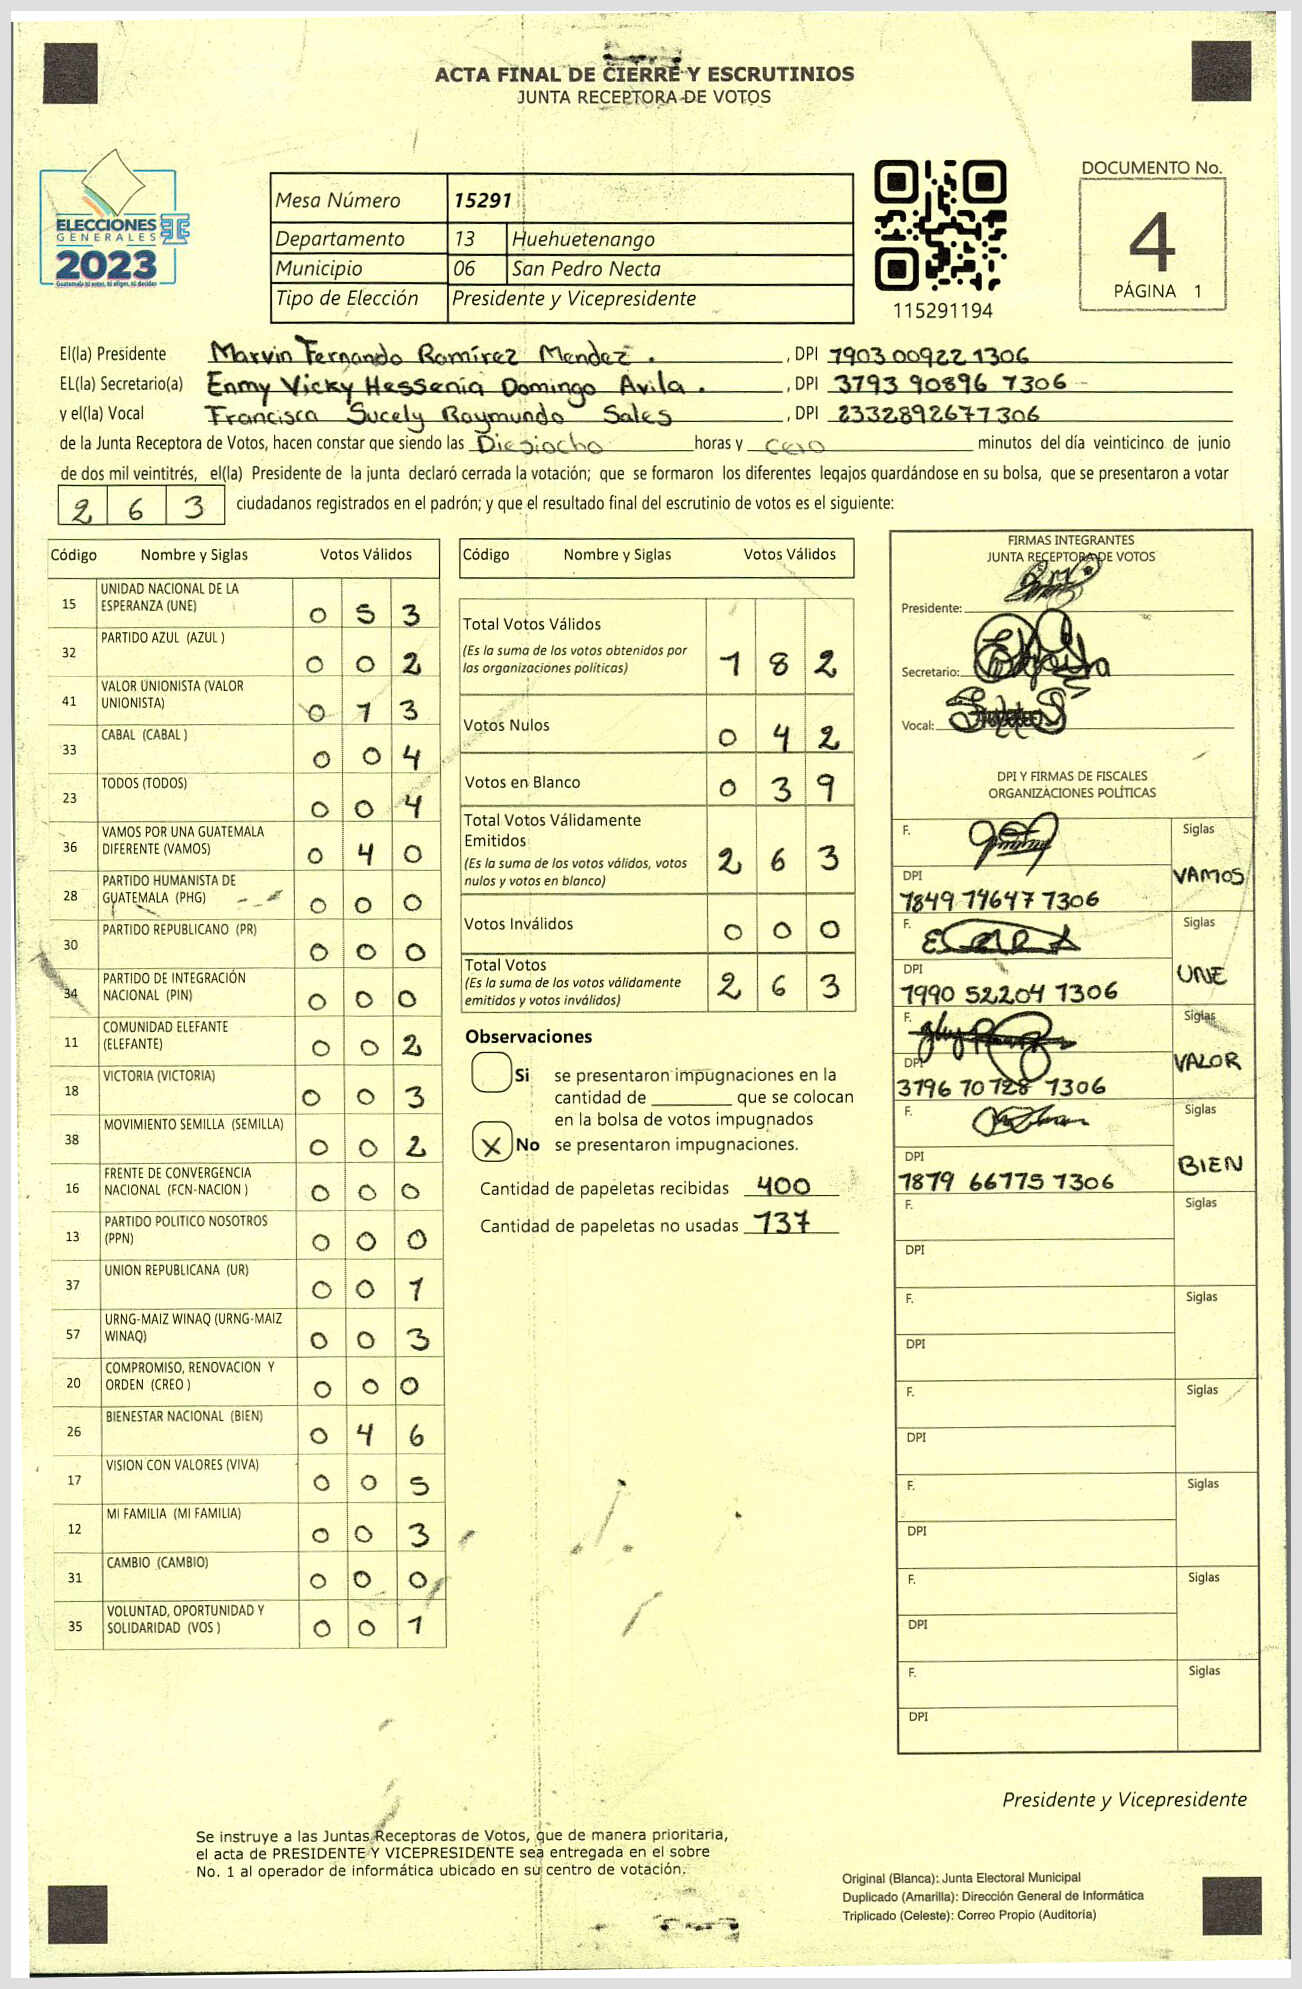 ACTA FINAL DE CIERRE Y ESCRUTINIOS
JUNTA RECEPTORA DE VOTOS
ELECCIONES
GENERALES
2023
Guatemala tú eres, tú eliges, tú decides
Mesa Número 15291
Departamento 13 Huehuetenango
Municipio 06 San Pedro Necta
Tipo de Elección Presidente y Vicepresidente
115291194
DOCUMENTO No.
4
PÁGINA 1
El(la) Presidente Marvin Fernando Ramírez Mendez. , DPI 1903 00922 1306
EL(la) Secretario(a) Enmy Vicky Hessenia Domingo Avila. , DPI 3793 90896 1306
y el(la) Vocal Francisca Sucely Raymundo Sales , DPI 2332892671306
de la Junta Receptora de Votos, hacen constar que siendo las Diesiocho horas y cero minutos del día veinticinco de junio
de dos mil veintitrés, el(la) Presidente de la junta declaró cerrada la votación; que se formaron los diferentes legajos quardándose en su bolsa, que se presentaron a votar
2 6 3 ciudadanos registrados en el padrón; y que el resultado final del escrutinio de votos es el siguiente:
Código Nombre y Siglas Votos Válidos
15 UNIDAD NACIONAL DE LA
ESPERANZA (UNE) 0 5 3
32 PARTIDO AZUL (AZUL ) 0 0 2
41 VALOR UNIONISTA (VALOR
UNIONISTA) 0 1 3
33 CABAL (CABAL ) 0 0 4
23 TODOS (TODOS) 0 0 4
36 VAMOS POR UNA GUATEMALA
DIFERENTE (VAMOS) 0 4 0
28 PARTIDO HUMANISTA DE
GUATEMALA (PHG) 0 0 0
30 PARTIDO REPUBLICANO (PR) 0 0 0
34 PARTIDO DE INTEGRACIÓN
NACIONAL (PIN) 0 0 0
11 COMUNIDAD ELEFANTE
(ELEFANTE) 0 0 2
18 VICTORIA (VICTORIA) 0 0 3
38 MOVIMIENTO SEMILLA (SEMILLA) 0 0 2
16 FRENTE DE CONVERGENCIA
NACIONAL (FCN-NACION ) 0 0 0
13 PARTIDO POLITICO NOSOTROS
(PPN) 0 0 0
37 UNION REPUBLICANA (UR) 0 0 1
57 URNG-MAIZ WINAQ (URNG-MAIZ
WINAQ) 0 0 3
20 COMPROMISO, RENOVACION Y
ORDEN (CREO ) 0 0 0
26 BIENESTAR NACIONAL (BIEN) 0 4 6
17 VISION CON VALORES (VIVA) 0 0 5
12 MI FAMILIA (MI FAMILIA) 0 0 3
31 CAMBIO (CAMBIO) 0 0 0
35 VOLUNTAD, OPORTUNIDAD Y
SOLIDARIDAD (VOS ) 0 0 1
Código Nombre y Siglas Votos Válidos
Total Votos Válidos
(Es la suma de los votos obtenidos por
las organizaciones políticas) 1 8 2
Votos Nulos 0 4 2
Votos en Blanco 0 3 9
Total Votos Válidamente
Emitidos
(Es la suma de los votos válidos, votos
nulos y votos en blanco) 2 6 3
Votos Inválidos 0 0 0
Total Votos
(Es la suma de los votos válidamente
emitidos y votos inválidos) 2 6 3
Observaciones
Si se presentaron impugnaciones en la
cantidad de ________ que se colocan
en la bolsa de votos impugnados
X No se presentaron impugnaciones.
Cantidad de papeletas recibidas 400
Cantidad de papeletas no usadas 137
FIRMAS INTEGRANTES
JUNTA RECEPTORA DE VOTOS
Presidente:
Secretario:
Vocal:
DPI Y FIRMAS DE FISCALES
ORGANIZACIONES POLÍTICAS
F. Siglas
VAMOS
DPI
1849 14647 1306
F. Siglas
UNE
DPI
1990 52204 1306
F. Siglas
VALOR
DPI
3796 70728 1306
F. Siglas
BIEN
DPI
1879 66775 1306
F. Siglas
DPI
F. Siglas
DPI
F. Siglas
DPI
F. Siglas
DPI
F. Siglas
DPI
F. Siglas
DPI
Presidente y Vicepresidente
Se instruye a las Juntas Receptoras de Votos, que de manera prioritaria,
el acta de PRESIDENTE Y VICEPRESIDENTE sea entregada en el sobre
No. 1 al operador de informática ubicado en su centro de votación.
Original (Blanca): Junta Electoral Municipal
Duplicado (Amarilla): Dirección General de Informática
Triplicado (Celeste): Correo Propio (Auditoría)